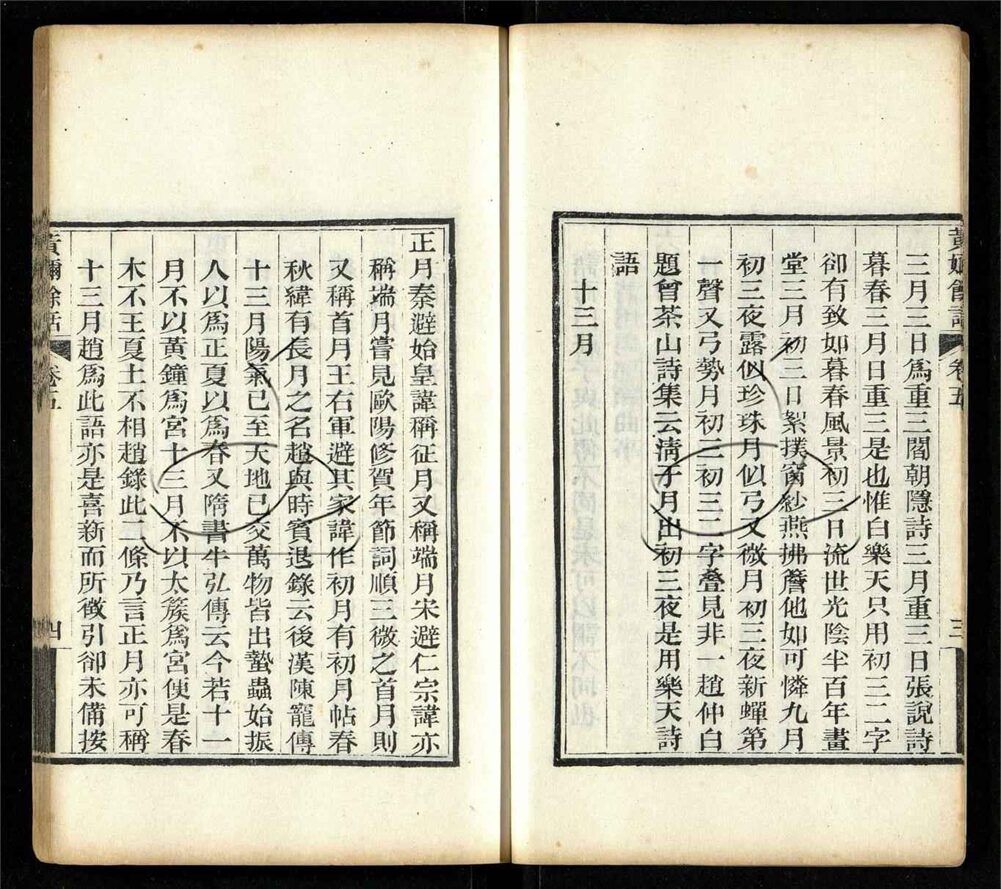 黃嬭餘話 卷五 三
三月三日爲重三閻朝隱詩三月重三日張說詩
暮春三月日重三是也惟白樂天只用初三二字
卻有致如暮春風景初三日流世光陰半百年畫
堂三月初三日絮撲窗紗燕拂簷他如可憐九月
初三夜露似珍珠月似弓又微月初三夜新蟬第
一聲又弓勢月初三初三二字疊見非一趙仲白
題曾茶山詩集云淸于月出初三夜是用樂天詩
語
十三月
正月秦避始皇諱稱征月又稱端月宋避仁宗諱亦
稱端月嘗見歐陽修賀年節詞順三微之首月則
又稱首月王右軍避其家諱作初月有初月帖春
秋緯有長月之名趙與時賓退錄云後漢陳寵傳
十三月陽氣已至天地已交萬物皆出蟄蟲始振
人以爲正夏以爲春又隋書牛弘傳云今若十一
月不以黃鐘爲宮十三月不以太簇爲宮便是春
木不王夏土不相趙錄此二條乃言正月亦可稱
十三月趙爲此語亦是喜新而所徵引卻未備按
黃嬭餘話 卷五 四